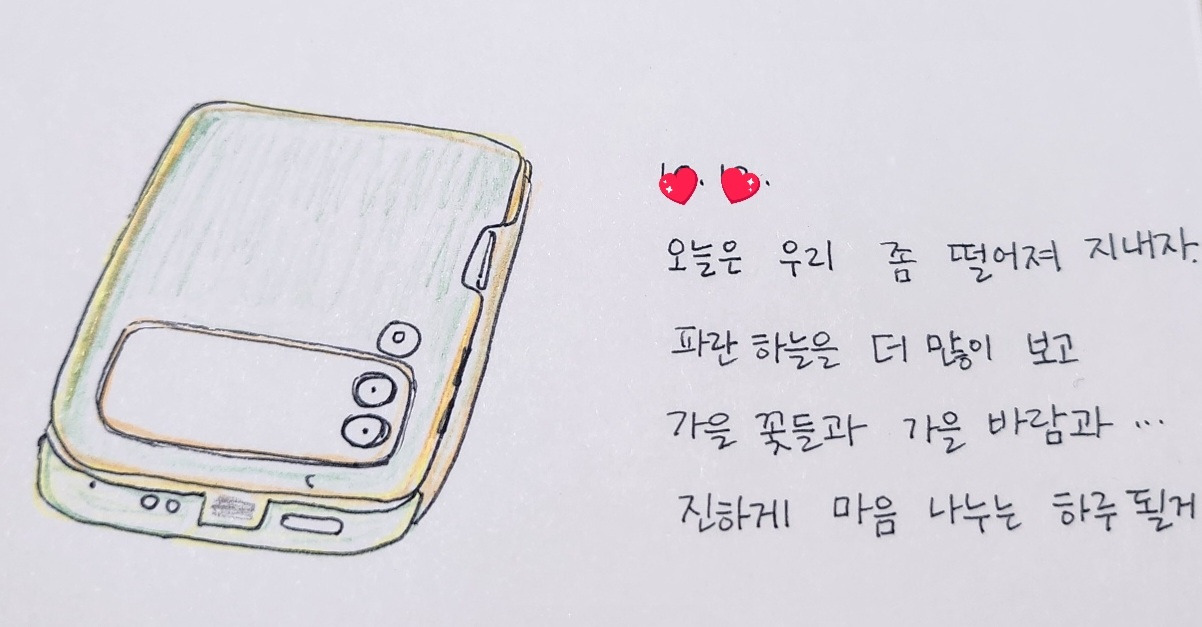 오늘은 우리 좀 떨어져 지내자.
파란 하늘을 더 많이 보고
가을 꽃들과 가을 바람과 ...
진하게 마음 나누는 하루 될거